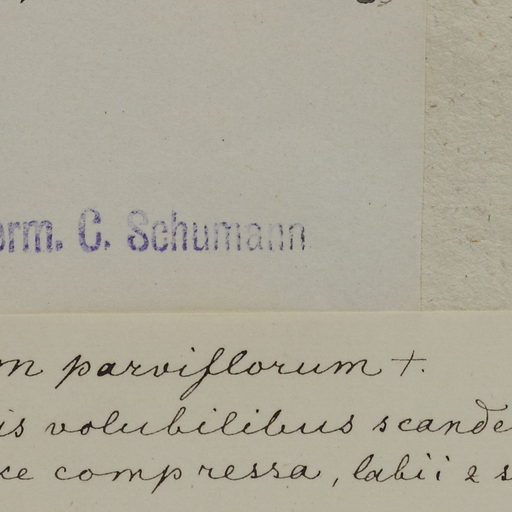 orm. C. Schumann
m parviflorum +.
is volubilibus scande
ce compressa, labii 2 s